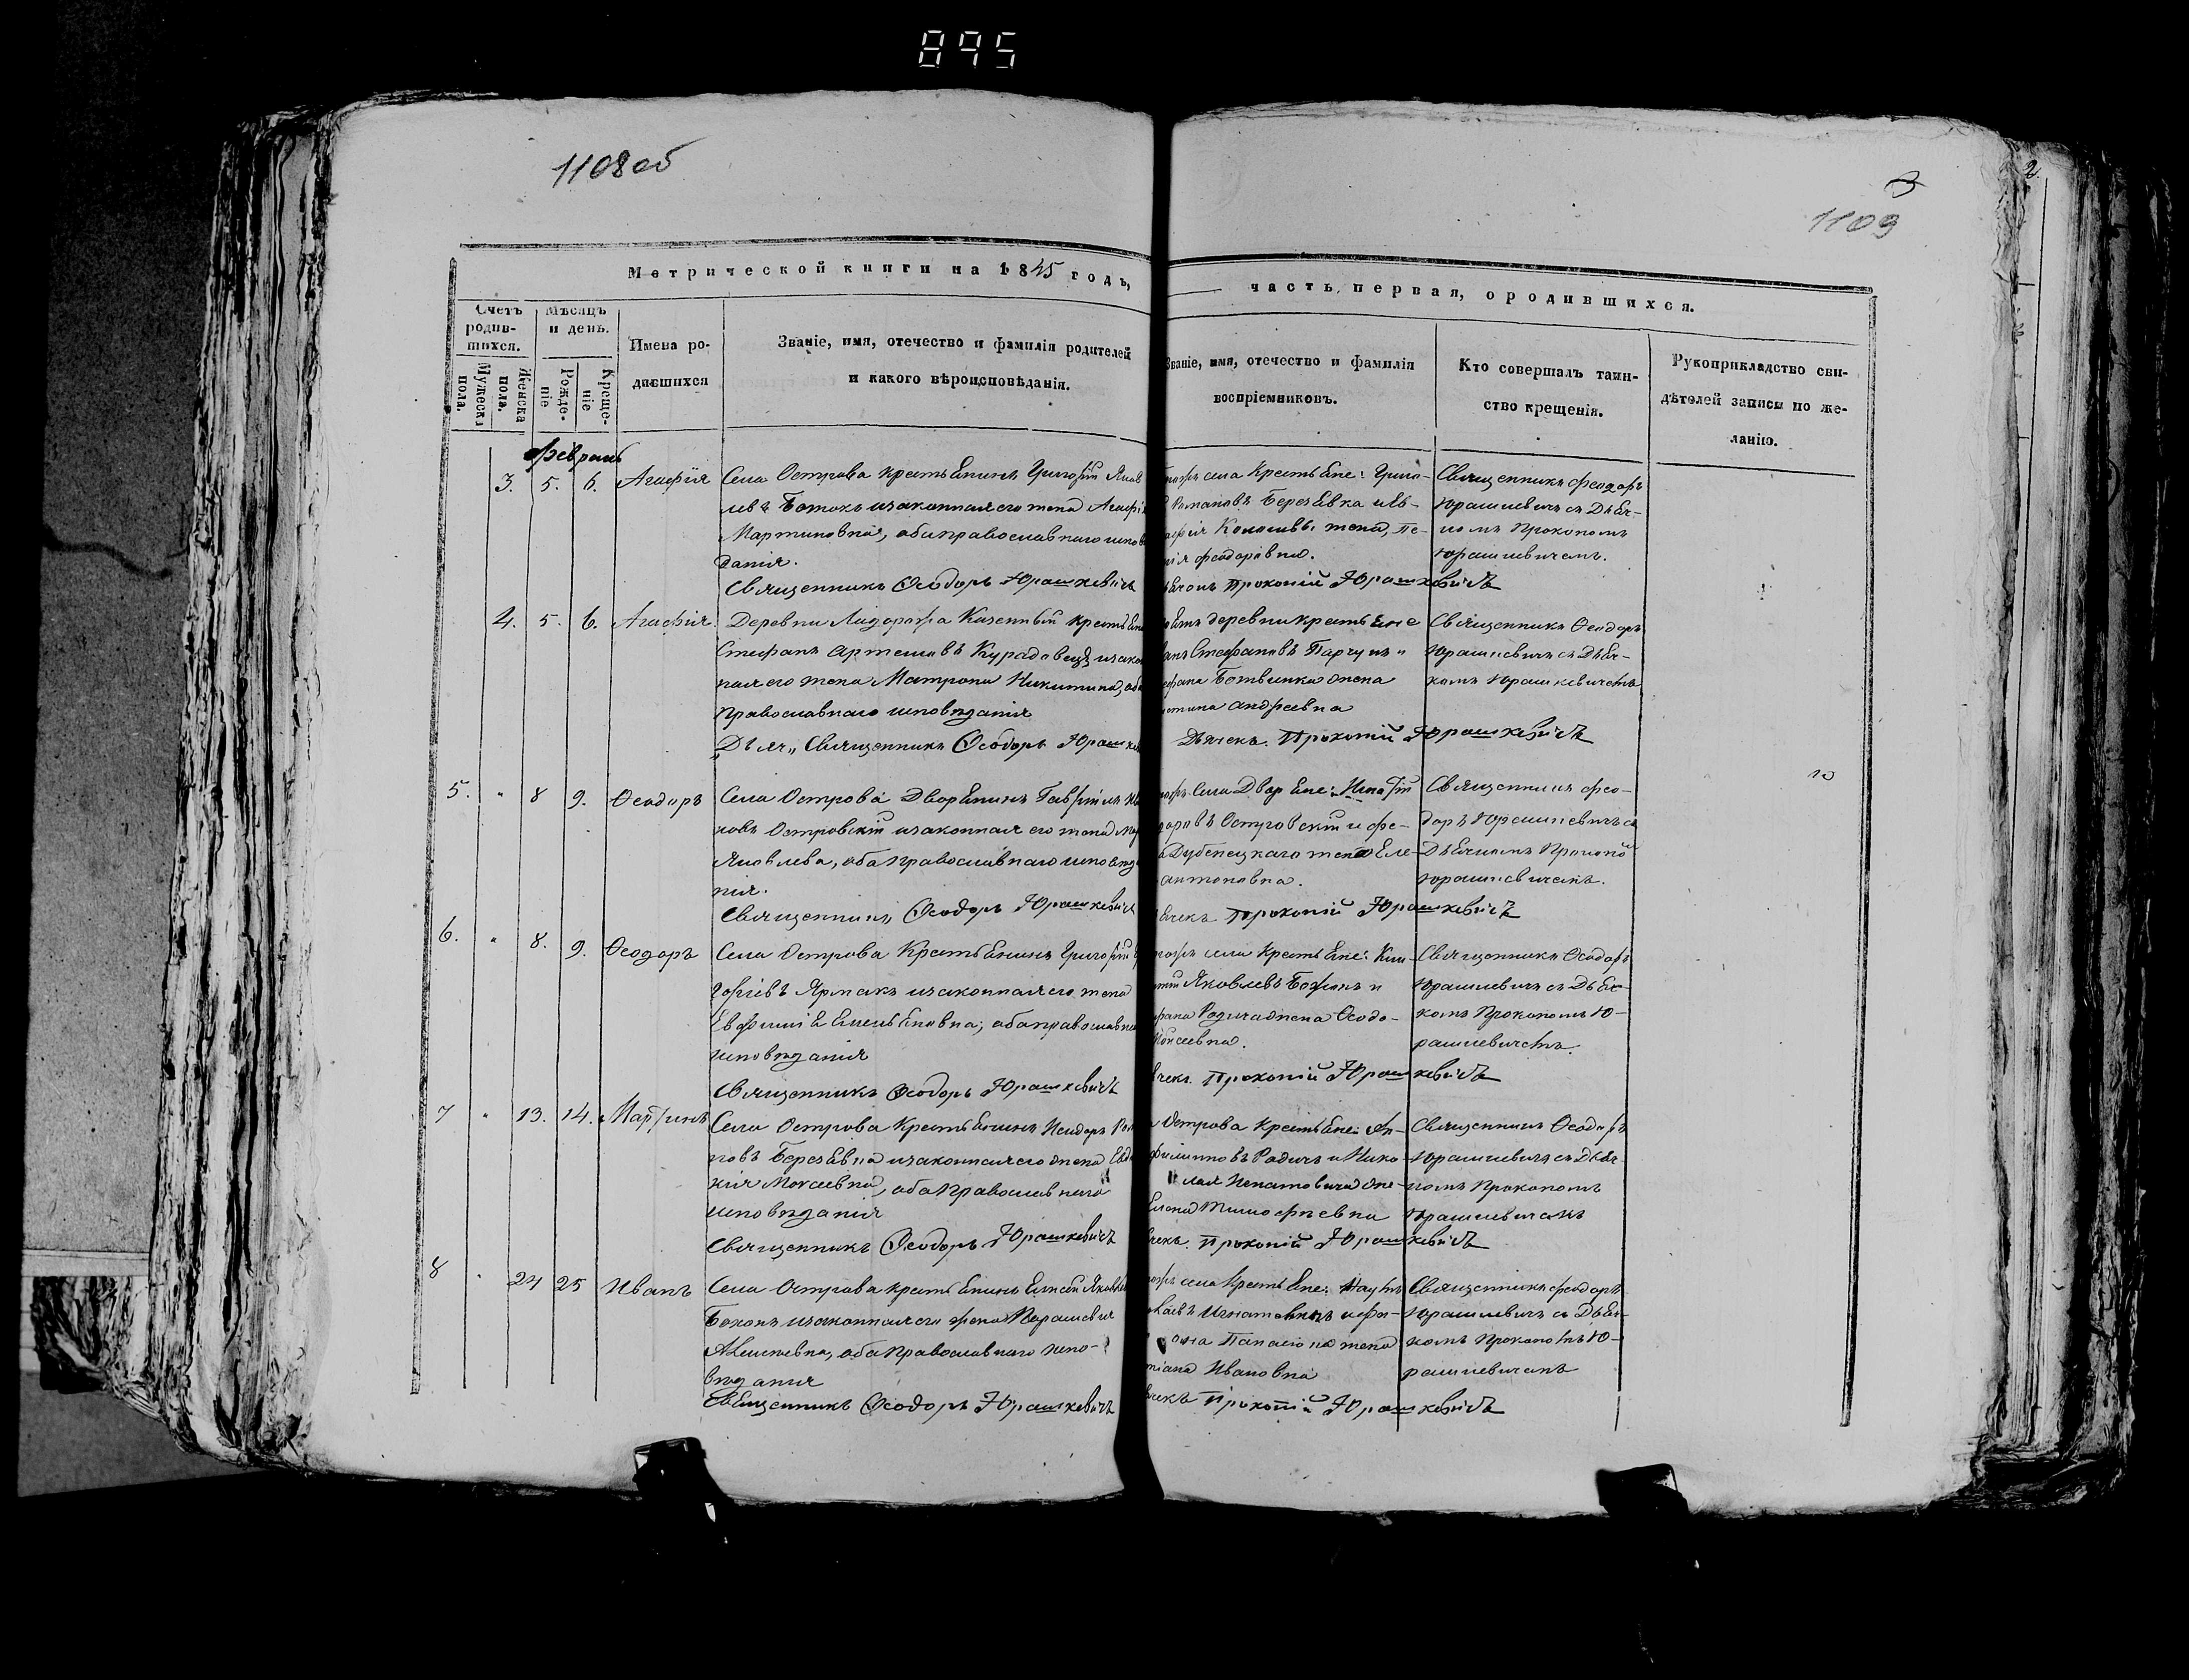 895
1108об
3
1109
2.
Метрической книги на 1845 годъ,
часть первая, о родившихся.
Счетъ родив-шихся.
Мужеска пола.
Женска пола.
Мѣсяцъ и день.
Рожде-ніе
Креще-ніе
Имена ро-
дившихся
Званіе, имя, отечество и фамилія родителей
и какого вѣроисповѣданія.
Званіе, имя, отечество и фамилія
воспріемниковъ.
Кто совершалъ таин-
ство крещенія.
Рукоприкладство сви-
дѣтелей записи по же-
ланію.
Февраль
3. 5. 6. Агафія
Села Острова крестьянинъ Григорій Яков
левъ и законная его жена Агафі
Мартиновна, оба православнаго испов
данія.
Священникъ Ѳеодоръ Юрашкевичъ
села Крестьяне: Григо-
Романовъ Березовка и
жена,
Феодоровна.
Прокопій Юрашкевичъ
Священникъ Феодоръ
Юрашкевичъ съ Дьяч-
комъ Прокопомъ
Юрашкевичемъ.
4. 5. 6. Агафія.
Деревни Казенный крестьян
Стефанъ Артемовъ и зако
ная его жена Матрона Никитина, оба
православнаго исповѣданія
Священникъ Ѳеодоръ Юрашке
деревни крестьяне
Стефановъ и
Ботвинка жена
Андреевна
Дьячекъ Прокопій Юрашкевичъ
Священникъ Ѳеодоръ
Юрашкевичъ съ Дьяч-
комъ Юрашкевичемъ
5. " 8 9. Ѳеодоръ
Села Острова Дворянинъ Гавріилъ
новъ Островскій и законная его жена
Яковлева, оба православнаго исповѣда
нія.
Священникъ Ѳеодоръ Юрашкевичъ
села Дворяне: Игнатій
Островскій и Фе-
Дубенецкаго жена Еле-
Антоновна.
Прокопій Юрашкевичъ
Священникъ Фео-
доръ Юрашкевичъ съ
Дьячкомъ Прокопо
Юрашкевичемъ.
6. " 8. 9. Ѳеодоръ
Села Острова Крестьянинъ Григорій
Ярмакъ и законная его жена
Евфимія Емельяновна, оба православна
исповѣданія
Священникъ Ѳеодоръ Юрашкевичъ
села Крестьяне:
Яковлевъ и
Родича жена Ѳеодо-
Моисеевна.
Прокопій Юрашкевичъ
Священникъ Ѳеодоръ
Юрашкевичъ съ Дьяч-
комъ Прокопомъ Ю-
рашкевичемъ.
7 " 13. 14. Мартинъ
Села Острова Крестьянинъ Исидоръ
новъ Березовка и законная его жена Евдо
кія Моисеевна, оба православнаго
исповѣданія
Священникъ Ѳеодоръ Юрашкевичъ
Острова Крестьяне:
Филиповъ Родичъ и Нико-
лая Игнатовича же-
Елена Тимофеевна
Прокопій Юрашкевичъ
Священникъ Ѳеодоръ
Юрашкевичъ съ Дьяч-
комъ Прокопомъ
Юрашкевичемъ
8 " 24 25 Иванъ
Села Острова крестьянинъ Елисей Яковлев
и законная его жена Параскевія
Алексѣевна, оба православнаго испо-
вѣданія
Священникъ Ѳеодоръ Юрашкевичъ
села Крестьяне: Наумъ
жена
Ивановна
Прокопій Юрашкевичъ
Священникъ Феодоръ
Юрашкевичъ съ Дьяч-
комъ Прокопомъ Ю-
рашкевичемъ